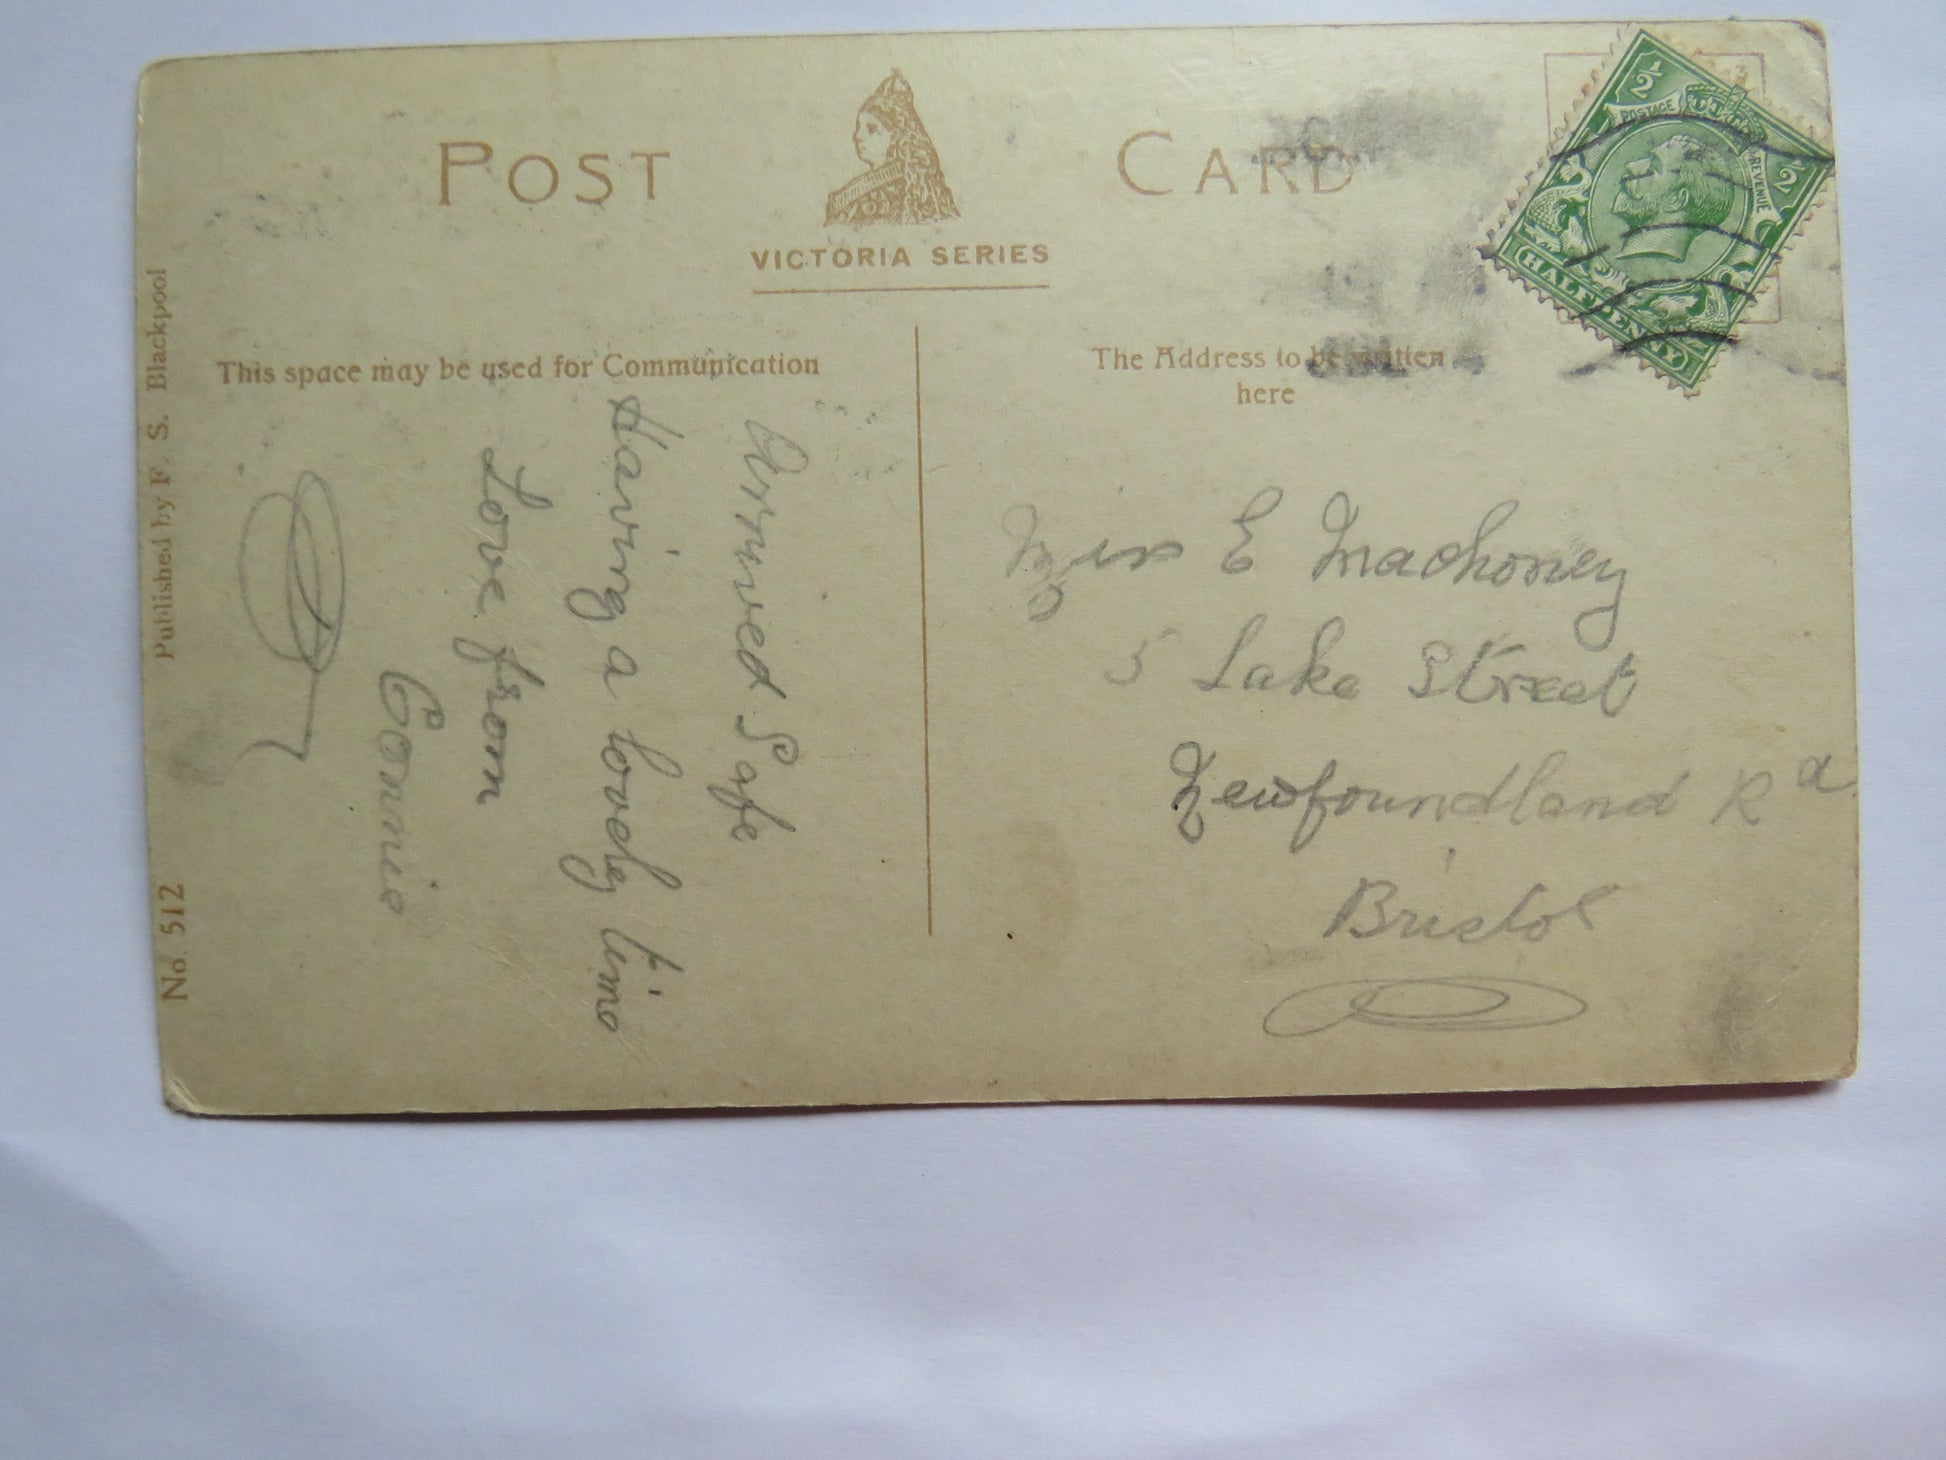 POST CARD
VICTORIA SERIES
This space may be used for Communication
The Address to be written
here
Arrived Safe
Having a lovely time
Love from
Connie
Miss E Machoney
5 Lake Street
Newfoundland Rd
Bristol
Published by F. S. Blackpool
No. 512
½ ½
POSTAGE REVENUE
HALFPENNY